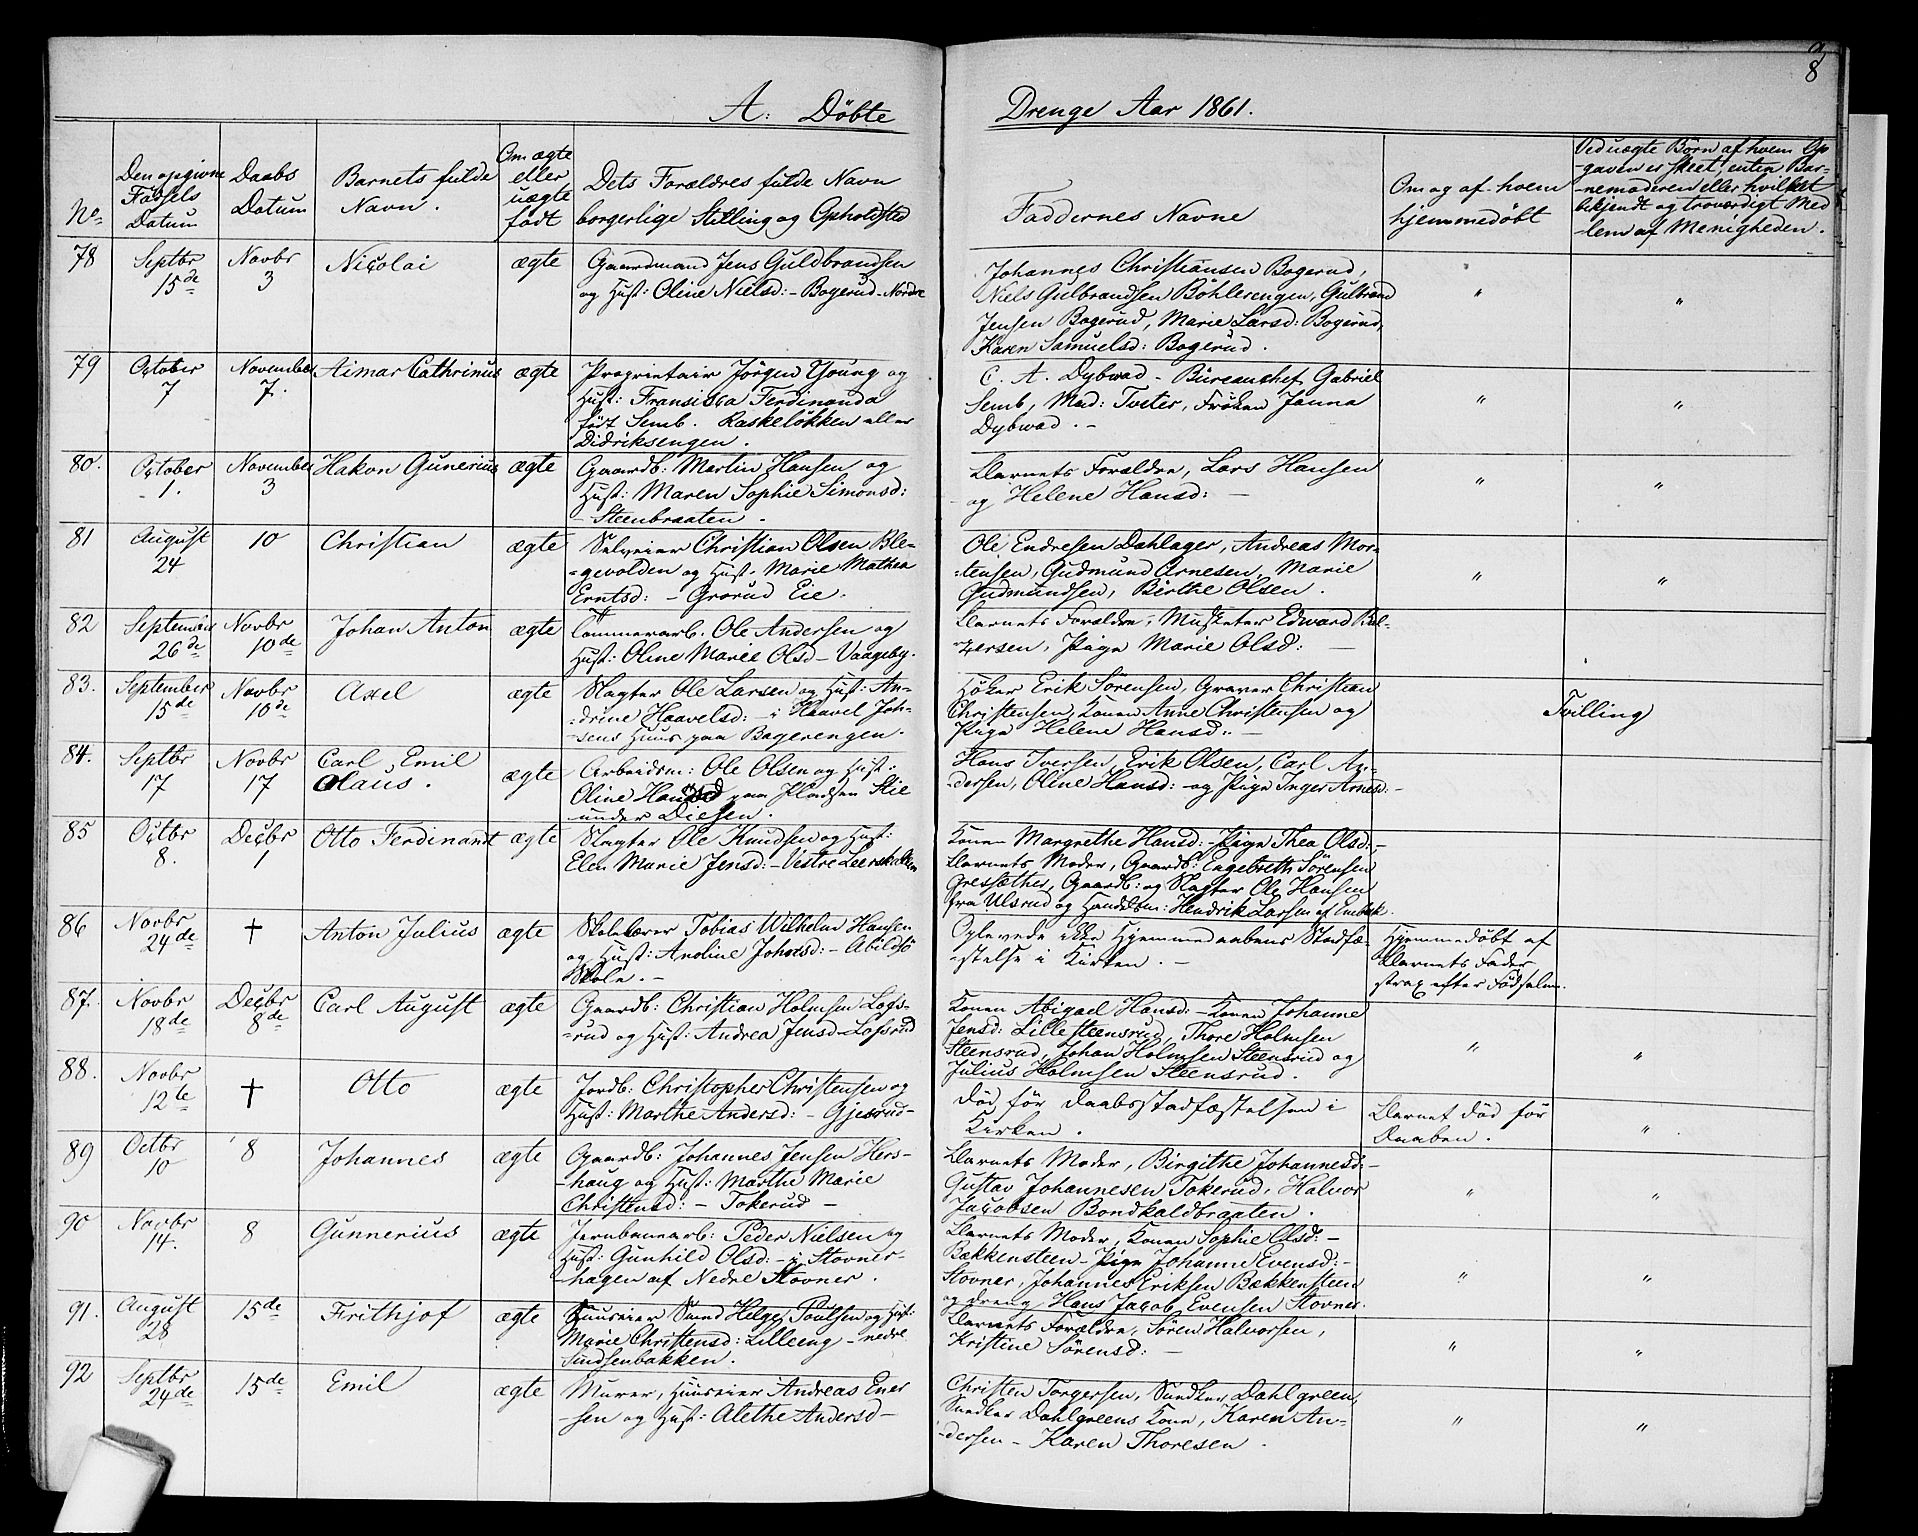 8
A: Döbte Drenge Aar 1861.
No.
Den opgivne Fødsels Datum
Daabs Datum
Barnets fulde Navn.
Om ægte eller uægte født
Dets Forældres fulde Navn borgerlige Stilling og Opholdsted
Faddernes Navne
Om og af hvem hjemmedöbt
Ved uægte Børn af hvem Op-
-gaven er skeet, enten Bar-
-nemoderen eller hvilket
bekjendt og troværdigt Med
-lem af Menigheden.
78 Septbr 15de Novbr 3 Nicolai ægte
Gaardmand Jens Guldbrandsen
og Hust: Oline Nielsd: - Bogerud - Nordre
Johannes Christiansen Bogerud,
Niels Gulbrandsen Böhlerengen, Gulbrand
Jensen Bogerud, Marie Larsd: Bogerud,
Karen Samuelsd: Bogerud.
" "
79 October 7 November 7. Aimar Cathrinus ægte
Proprietair Jörgen Young og
Hust: Fransisca Ferdinanda
født Semb. Raskelökken eller
Didriksengen.
C. A. Dybwad - Büreauchef Gabriel
Semb, Mad: Tveter, Fröken Janna
Dybwad. -
" "
80. October 1. November 3 Hakon Gunerius ægte
Gaardb: Martin Hansen og
Hust: Maren Sophie Simonsd:
- Steenbraaten.
Barnets Forældre, Lars Hansen
og Helene Hansd: -
" "
81 August 24 10 Christian ægte
Selveier Christian Olsen Ble-
-gevolden og Hust. Marie Mathea
Erntsd: - Grorud Eie.
Ole Endresen Dahlager, Andreas Mor-
-tensen, Gudmund Arnesen, Marie
Gudmundsen, Birthe Olsen.
" "
82 September 26de Novbr 10de Johan Anton ægte
Tömmerarb. Ole Andersen og
Hust: Oline Marie Olsd - Vaageby.
Barnets Forældre, Musketer Edward
Pige Marie Olsd: -
83. September 15de Novbr 10de Axel ægte
Slagter Ole Larsen og Hust: An-
-drine Haavelsd: - i Haavel Joh-
-sens Huus paa Bogerengen.
Höker Erik Sörensen, Graver Christian
Christensen, Konen Anne Christensen og
Pige Helene Hansd: -
Tvilling
84. Septbr 17 Novbr 17 Carl Emil
Olaus. ægte
Arbeidsm: Ole Olsen og Hust:
Oline Hansd paa Pladsen Stie
under Diesen.
Hans Iversen, Erik Olsen, Carl An-
-dersen, Oline Hansd: - og Pige Inger Arnesd: -
85 Octbr 8. Decbr 1 Otto Ferdinandt ægte
Slagter Ole Knudsen og Hust:
Elen Marie Jensd: - Vestre
Konen Margrethe Hansd: - Pige Thea Olsd: -
Barnets Moder, Gaardb: Engebreth Sörensen
Gressæther, Gaardb: og Slagter Ole Hansen
fra Ulsrud og Handelsm: Hendrik Larsen af
86 Novbr 24de † Anton Julius ægte
Skolelærer Tobias Wilhelm Hansen
og Hust: Andine Johnsd: - Abildsö
Skole. -
Oplevede ikke Hjemmedaabens Stadfæ-
-stelse i Kirken. -
Hjemmedöbt af
Barnets Fader
strax efter Födselen.
87. Novbr 18de Decbr 8de Carl August ægte
Gaardb: Christian Holmsen Lofs-
-rud og Hust: Andrea Jensd - Lofsrud
Konen Abigael Hansd: - Konen Johanne
Jensd: Lille Steensrud, Thore Holmsen
Steensrud, Johan Holmsen Steensrud og
Julius Holmsen Steensrud.
" "
88. Novbr 12te † Otto ægte
Jordb: Christopher Christensen og
Hust: Marthe Andersd: - Gjesrud -
Död för Daabsstadfæstelsen i
Kirken.
Barnet död för
Daaben.
"
89 Octbr 10 8 Johannes ægte
Gaardb: Johannes Jensen Hers-
-haug og Hust: Marthe Marie
Christensd: - Tokerud -
Barnets Moder, Birgithe Johannesd: -
Gustav Johannesen Tokerud, Halvor
Jacobsen Bondkaldbraaten.
" "
90 Novbr 14. 8 Gunnerius ægte
Jernbanearb: Peder Nielsen og
Hust: Gunhild Olsd: - i Stovner-
-hagen af Nedre Stovner.
Barnets Moder, Konen Sophie Olsd: -
Bækkensteen - Pige Johanne Evensd: -
Stovner, Johannes Eriksen Bækkensteen
og dreng Hans Jacob Evensen Stovner.
" "
91. August 28 15de Frithjof ægte
Huuseier Svend Helge Poulsen og Hust:
Marie Christensd: Lilleeng - nedre
Sindsenbakken.
Barnets Forældre, Sören Halvorsen,
Kristine Sörensd: -
" "
92 Septbr 24de 15de Emil ægte
Murer, Huuseier Andreas Ener
-sen og Hust: Alethe Andersd -
Christen Torgersen, Snedker Dahlgreen,
Snedker Dahlgreens Kone, Karen An-
-dersen - Karen Thoresen.
" "